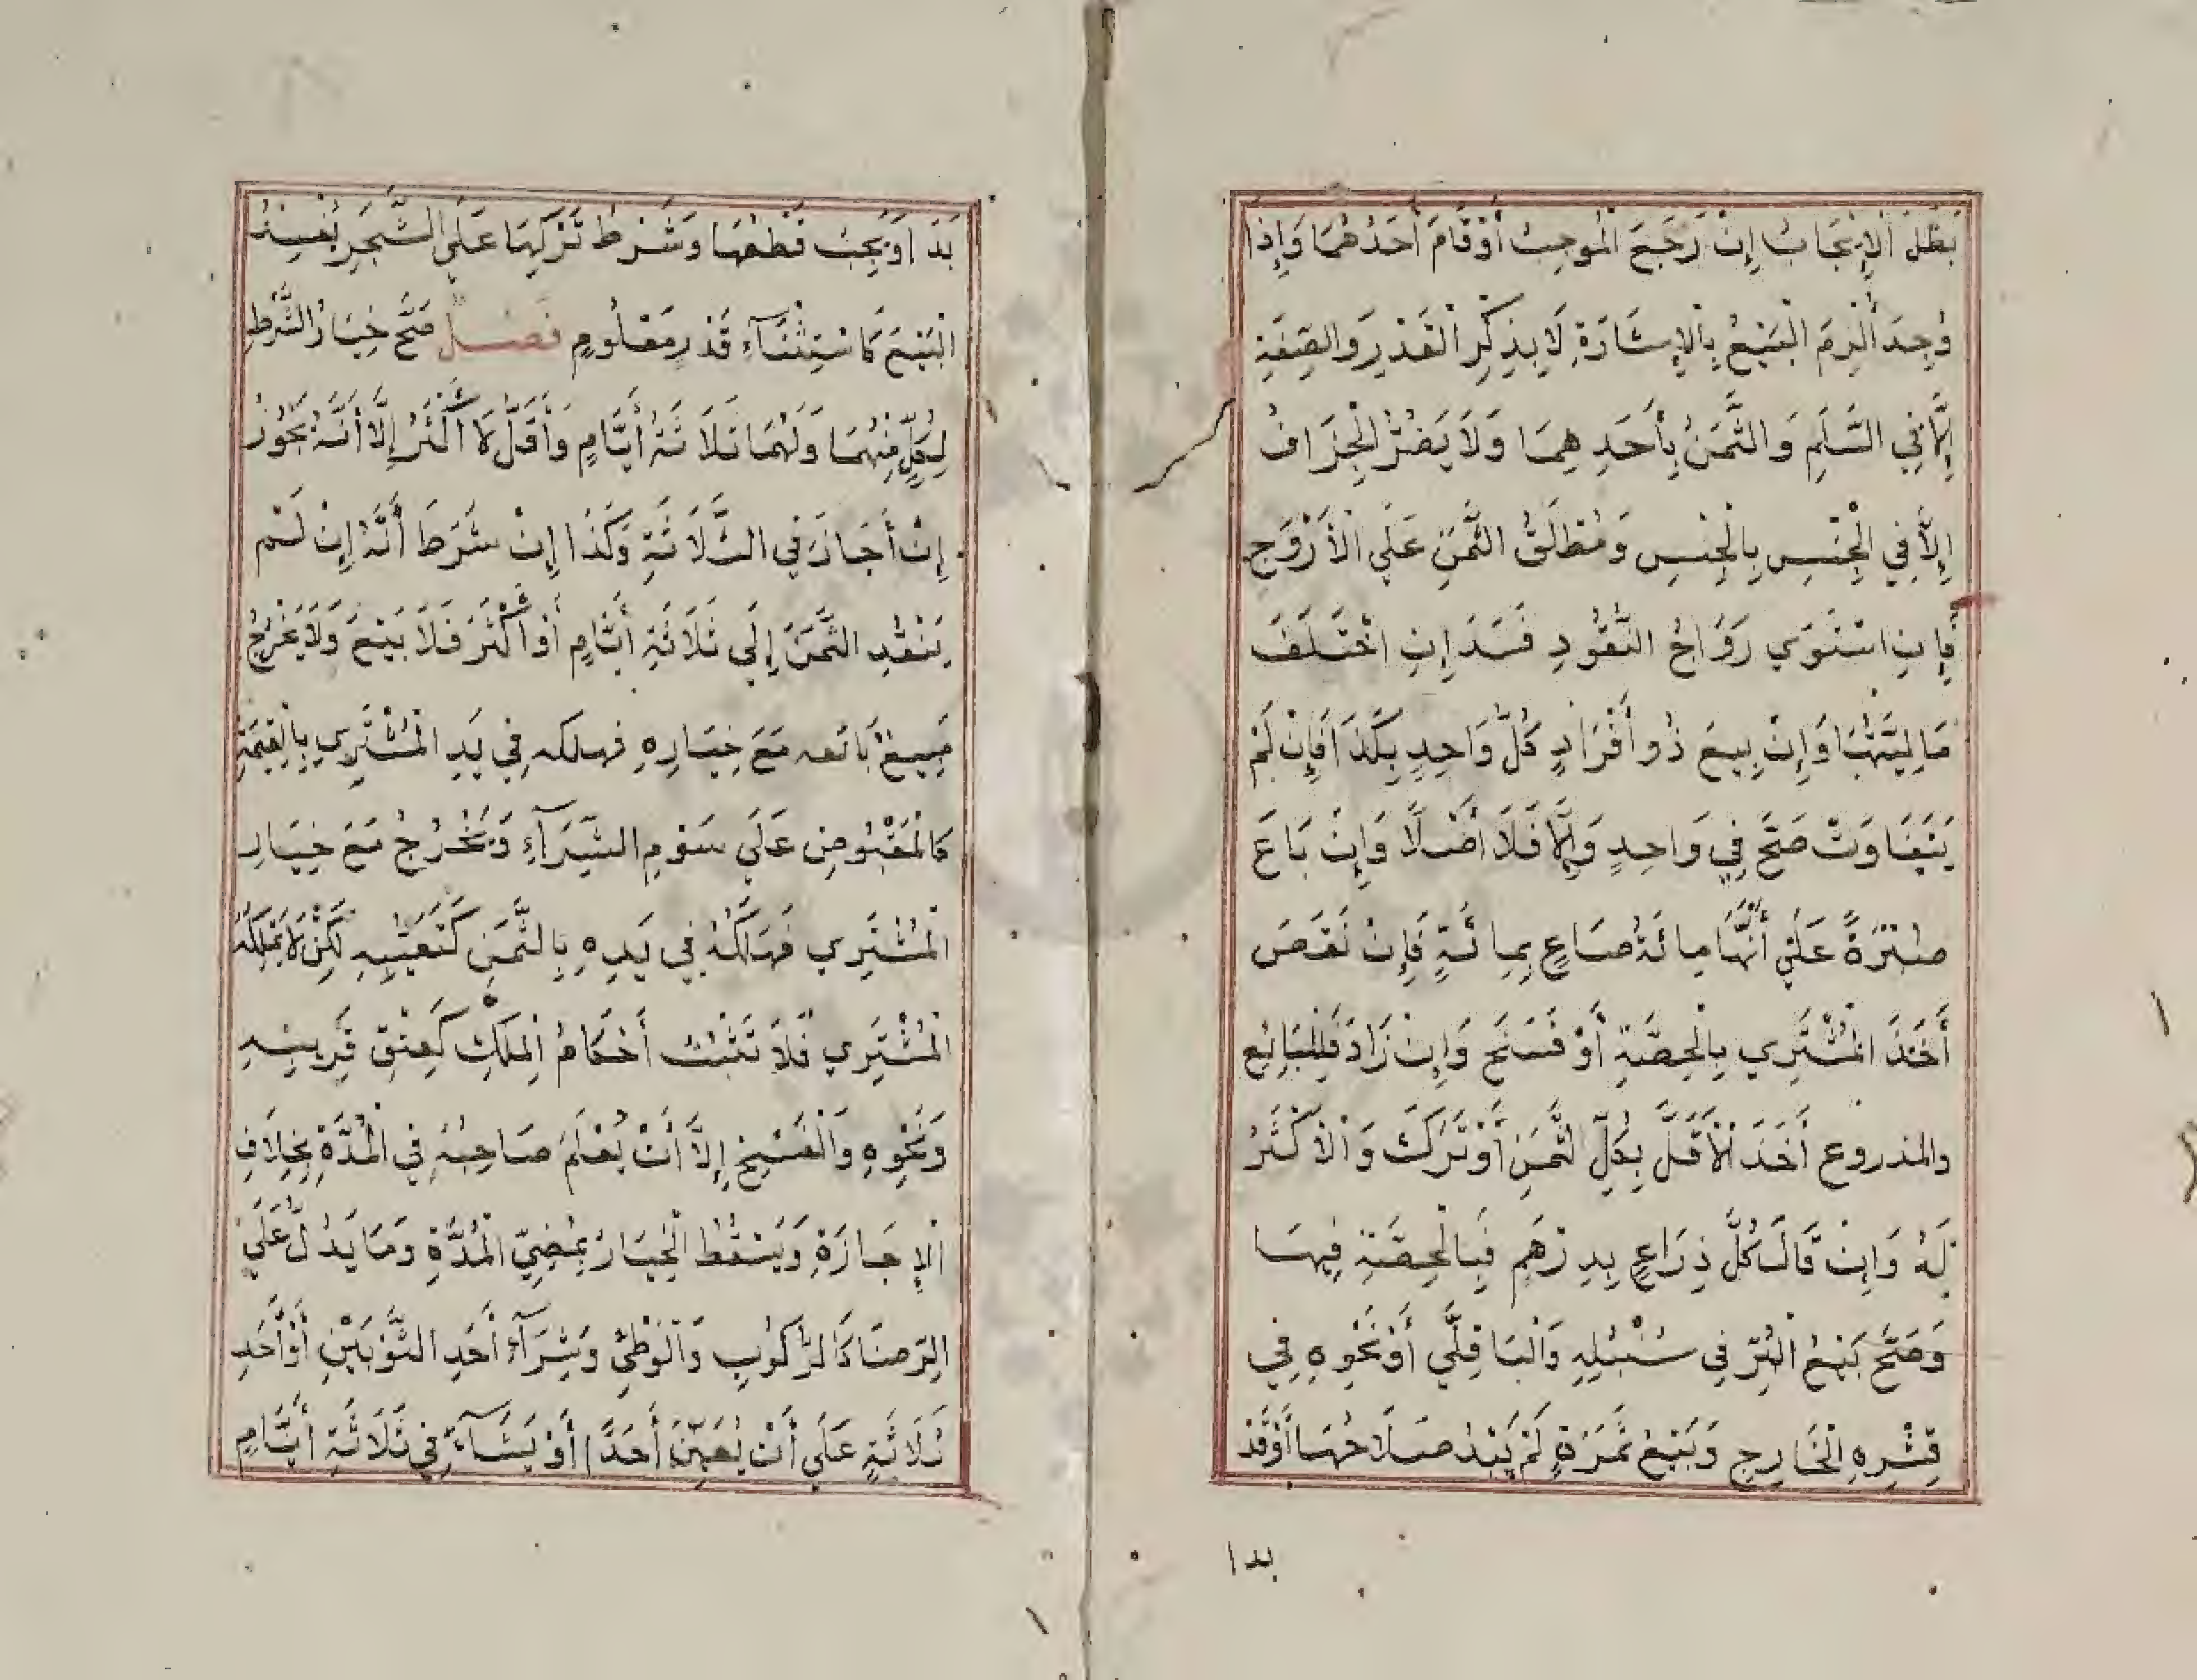 بَطَلَ الْإِيجَابُ إِنْ رَجَعَ الْمُوجِبُ أَوْ قَامَ أَحَدُهُمَا وَإِذَا
وُجِدَ أُلْزِمَ الْبَيْعُ بِالْإِشَارَةِ لَا بِذِكْرِ الْقَدْرِ وَالصِّفَةِ
إِلَّا فِي السَّلَمِ وَالثَّمَنُ بِأَحَدِهِمَا وَلَا يَضُرُّ الْجِزَافُ
إِلَّا فِي الْجِنْسِ بِالْجِنْسِ وَمُطْلَقُ الثَّمَنِ عَلَى الْأَرْوَجِ
فَإِنِ اسْتَوَى رَوَاجُ النُّقُودِ فَسَدَ إِنِ اخْتَلَفَ
مَالِيَتُهَا وَإِنْ بِيعَ ذُو أَفْرَادٍ كُلُّ وَاحِدٍ بِكَذَا فَإِنْ لَمْ
يَتَفَاوَتْ صَحَّ فِي وَاحِدٍ وَإِلَّا فَلَا أَصْلًا وَإِنْ بَاعَ
صُبْرَةً عَلَى أَنَّهَا مِائَةُ صَاعٍ بِمِائَةٍ فَإِنْ نَقَصَ
أَخَذَ الْمُشْتَرِي بِالْحِصَّةِ أَوْ فَسَخَ وَإِنْ زَادَ فَلِلْبَائِعِ
والمذروع أَخَذَ الْأَقَلَّ بِكُلِّ الثَّمَنِ أَوْ تَرَكَ وَالْأَكْثَرُ
لَهُ وَإِنْ قَالَ كُلَّ ذِرَاعٍ بِدِرْهَمٍ فَبِالْحِصَّةِ فِيهَا
وَصَحَّ بَيْعُ الْبُرِّ فِي سُنْبُلِهِ وَالْبَاقِلَّى أَوْ نَحْوِهِ فِي
قِشْرِهِ الْخَارِجِ وَبَيْعُ ثَمَرَةٍ لَمْ يَبْدُ صَلَاحُهَا أَوْ قَدْ
بدا
بَدَا وَيَجِبُ قَطْعُهَا وَشَرْطُ تَرْكِهَا عَلَى الشَّجَرِ يُفْسِدُ
الْبَيْعَ كَاسْتِثْنَآءِ قَدْرٍ مَعْلُومٍ فَصْل صَحَّ خِيَارُ الشَّرْطِ
لِكُلٍّ مِنْهُمَا وَلَهُمَا ثَلَاثَةُ أَيَّامٍ وَأَقَلَّ لَا أَكْثَرُ إِلَّا أَنَّهُ يَجُوزُ
إِنْ أَجَازَ فِي الثَّلَاثَةِ وَكَذَا إِنْ شَرَطَ أَنَّهُ إِنْ لَمْ
يَنْقُدِ الثَّمَنَ إِلَى ثَلَاثَةِ أَيَّامٍ أَوْ أَكْثَرَ فَلَا بَيْعَ وَلَا يَخْرُجُ
مَبِيعُ بَائعه مَعَ خِيَارِهِ فهلكه فِي يَدِ الْمُشْتَرِي بِالْقِيمَةِ
كَالْمَقْبُوضِ عَلَى سَوْمِ الشِّرَآءِ وَيَخْرُجُ مَعَ خِيَارِ
الْمُشْتَرِي فَهَلَكُهُ فِي يَدِهِ بِالثَّمَنِ كَتَعَيُّبِهِ لَكِنْ لَا يَمْلِكُهُ
الْمُشْتَرِي فَلَا تَثْبُتُ أَحْكَامُ الْمِلْكِ كَعِتْقِ قَرِيبِهِ
وَنَحْوِهِ وَالْفَسْخِ إِلَّا أَنْ يُعْلَمَ صَاحِبُهُ فِي الْمُدَّةِ بِخِلَافِ
الْإِجَازَةِ وَيَسْقُطُ الْخِيَارُ بِمُضِيِّ الْمُدَّةِ وَمَا يَدُلُّ عَلَى
الرِّضَا كَالرُّكُوبِ وَالْوَطْئِ وَشِرَآءُ أَحَدِ الثَّوْبَيْنِ أَوْ أَحَدِ
ثَلَاثَةٍ عَلَى أَنْ يُعَيِّنَ أَحَدًا أَوْ يَشَآءَ فِي ثَلَاثَةِ أَيَّامٍ